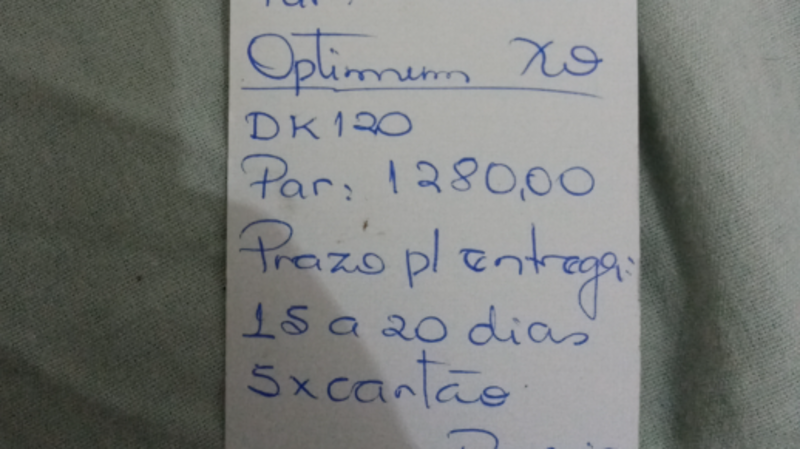 Par:
Optimum XO
DK 120
Par: 1280,00
Prazo p/ entrega:
15 a 20 dias
5x cartão